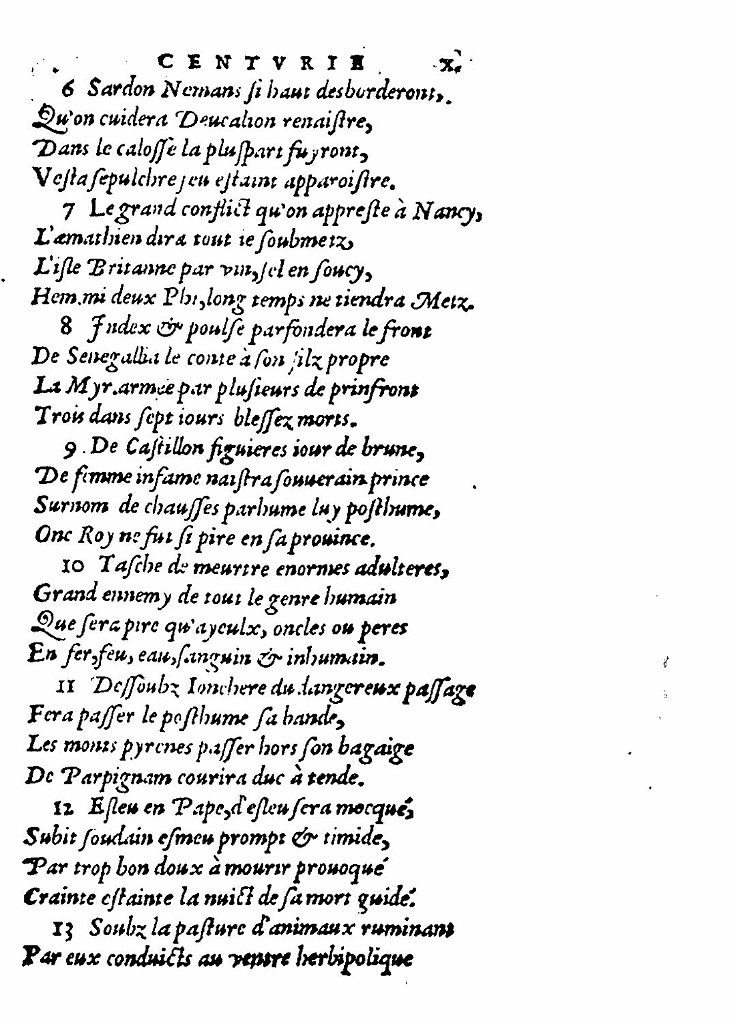 CENTVRIE X.
6 Sardon Nemans si haut desborderont,
Qu'on cuidera Deucalion renaistre,
Dans le calosse la pluspart fuyront,
Vesta sepulchre feu estaint apparoistre.
7 Le grand conflict qu'on appreste à Nancy,
L'æmathien dira tout ie soubmetz,
L'isle Britanne par vin, sel en soucy,
Hem.mi deux Phi, long temps ne tiendra Metz.
8 Index & poulse parfondera le front
De Senegallia le conte à son filz propre
La Myr.armée par plusieurs de prinfront
Trois dans sept iours blessez morts.
9. De Castillon figuieres iour de brune,
De femme infame naistra souuerain prince
Surnom de chausses parhume luy posthume,
Onc Roy ne fut si pire en sa prouince.
10 Tasche de meurtre enormes adulteres,
Grand ennemy de tout le genre humain
Que sera pire qu'ayeulx, oncles ou peres
En fer, feu, eau, sanguin & inhumain.
11 Dessoubz Ionchere du dangereux passage
Fera passer le posthume sa bande,
Les monts pyrenes passer hors son bagaige
De Parpignam courira duc à tende.
12 Esleu en Pape, d'esleu sera mocqué,
Subit soudain esmeu prompt & timide,
Par trop bon doux à mourir prouoqué
Crainte estainte la nuict de sa mort guide.
13 Soubz la pasture d'animaux ruminant
Par eux conduicts au ventre herbipolique